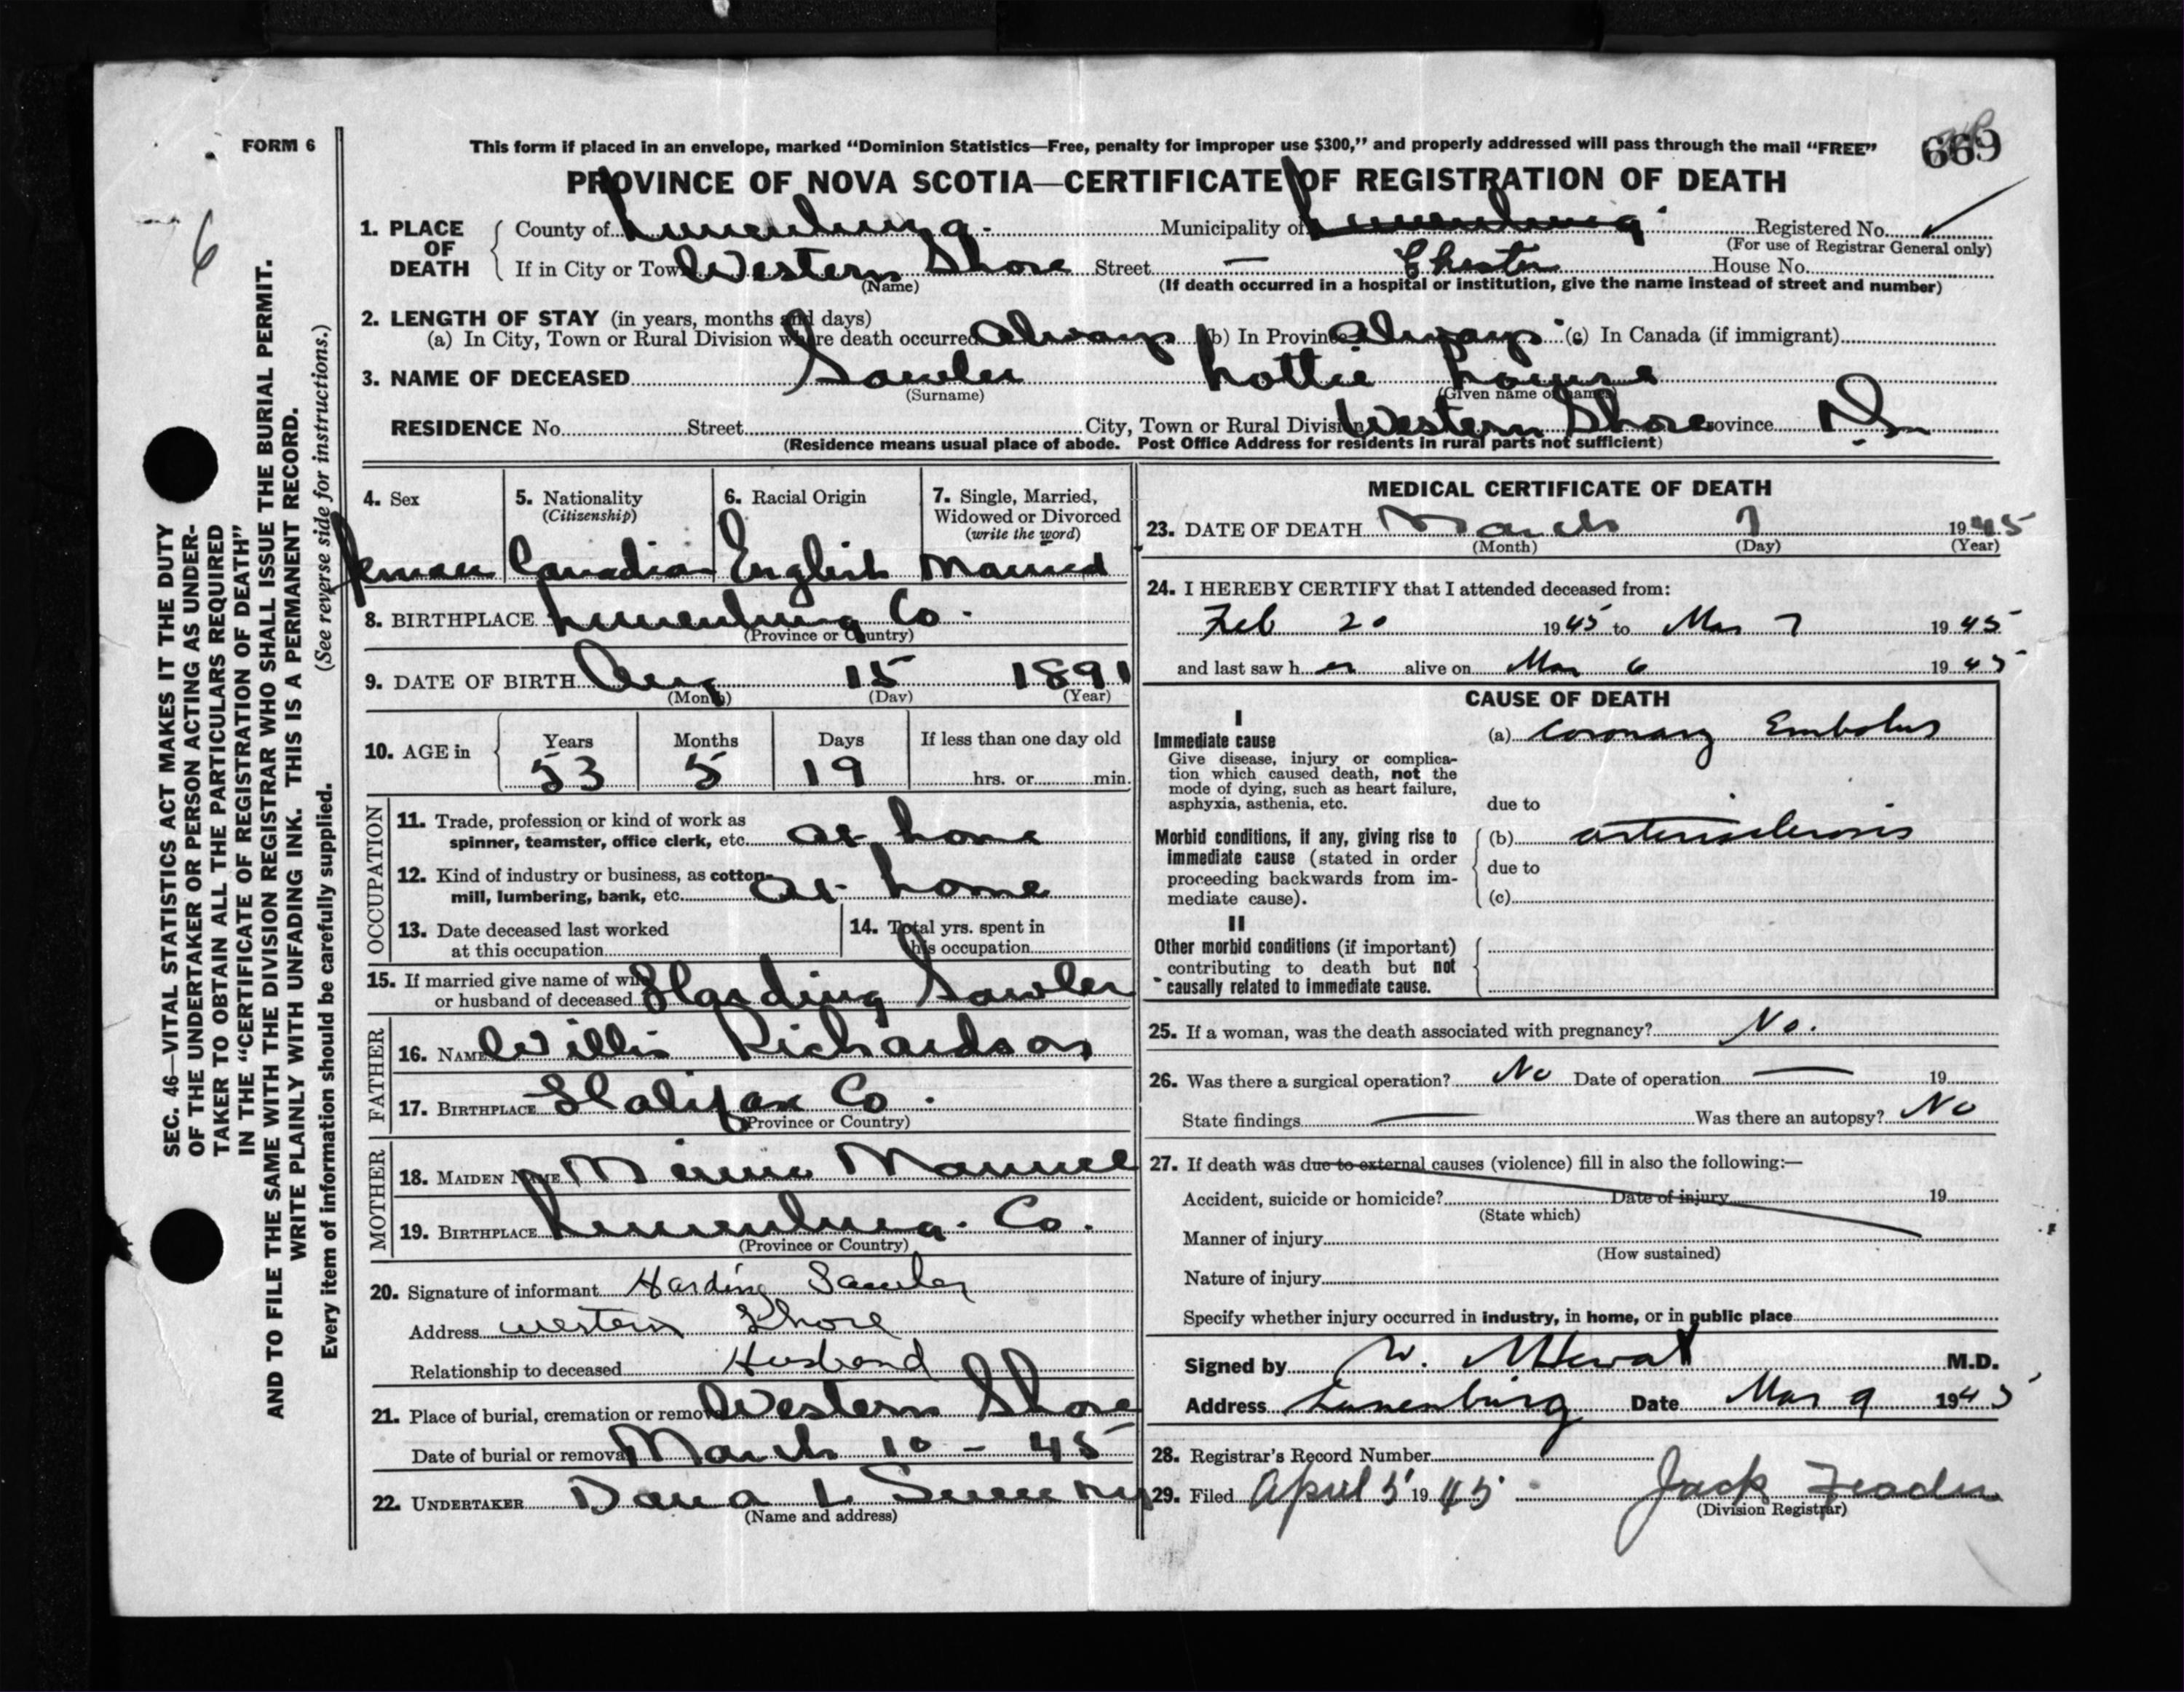 FORM 6
This form if placed in an envelope, marked “Dominion Statistics—Free, penalty for improper use $300,” and properly addressed will pass through the mail “FREE”
669
PROVINCE OF NOVA SCOTIA—CERTIFICATE OF REGISTRATION OF DEATH
6
1. PLACE OF DEATH
County of Lunenburg. Municipality of Lunenburg Registered No. ✓
(For use of Registrar General only)
If in City or Town Western Shore Street — Chester House No.
(Name) (If death occurred in a hospital or institution, give the name instead of street and number)
2. LENGTH OF STAY (in years, months and days)
(a) In City, Town or Rural Division where death occurred Always (b) In Province Always (c) In Canada (if immigrant)
3. NAME OF DECEASED Sawler Lottie Louise
(Surname) (Given name or names)
RESIDENCE No. Street City, Town or Rural Division Western Shore Province N.S.
(Residence means usual place of abode. Post Office Address for residents in rural parts not sufficient)
SEC. 46—VITAL STATISTICS ACT MAKES IT THE DUTY
OF THE UNDERTAKER OR PERSON ACTING AS UNDER-
TAKER TO OBTAIN ALL THE PARTICULARS REQUIRED
IN THE “CERTIFICATE OF REGISTRATION OF DEATH”
AND TO FILE THE SAME WITH THE DIVISION REGISTRAR WHO SHALL ISSUE THE BURIAL PERMIT.
WRITE PLAINLY WITH UNFADING INK. THIS IS A PERMANENT RECORD.
Every item of information should be carefully supplied. (See reverse side for instructions.)
4. Sex
5. Nationality
(Citizenship)
6. Racial Origin
7. Single, Married,
Widowed or Divorced
(write the word)
Canadian English Married
8. BIRTHPLACE Lunenburg Co.
(Province or Country)
9. DATE OF BIRTH Aug 15 1891
(Month) (Day) (Year)
10. AGE in
Years Months Days If less than one day old
53 5 19 hrs. or min.
OCCUPATION
11. Trade, profession or kind of work as
spinner, teamster, office clerk, etc. at home
12. Kind of industry or business, as cotton-
mill, lumbering, bank, etc. at home
13. Date deceased last worked
at this occupation
14. Total yrs. spent in
this occupation
15. If married give name of wife
or husband of deceased Harding Sawler
FATHER
16. NAME Willis Richardson
17. BIRTHPLACE Halifax Co.
(Province or Country)
MOTHER
18. MAIDEN NAME
19. BIRTHPLACE Lunenburg. Co.
(Province or Country)
20. Signature of informant Harding Sawler
Address western Shore
Relationship to deceased Husband
21. Place of burial, cremation or removal Western Shore
Date of burial or removal March 10 - 45
22. UNDERTAKER Dana L
(Name and address)
MEDICAL CERTIFICATE OF DEATH
23. DATE OF DEATH March 7 1945
(Month) (Day) (Year)
24. I HEREBY CERTIFY that I attended deceased from:
Feb 20 1945 to Mar 7 1945
and last saw h er alive on Mar 6 1945
CAUSE OF DEATH
I
Immediate cause
Give disease, injury or complica-
tion which caused death, not the
mode of dying, such as heart failure,
asphyxia, asthenia, etc.
(a) Coronary Embolus
due to
Morbid conditions, if any, giving rise to
immediate cause (stated in order
proceeding backwards from im-
mediate cause).
(b) arteriosclerosis
due to
(c)
II
Other morbid conditions (if important)
contributing to death but not
causally related to immediate cause.
25. If a woman, was the death associated with pregnancy? No.
26. Was there a surgical operation? No Date of operation — 19
State findings — Was there an autopsy? No
27. If death was due to external causes (violence) fill in also the following:—
Accident, suicide or homicide? Date of injury 19
(State which)
Manner of injury
(How sustained)
Nature of injury
Specify whether injury occurred in industry, in home, or in public place
Signed by W. M.D.
Address Lunenburg Date Mar 9 1945
28. Registrar's Record Number
29. Filed April 5 1945 Jack
(Division Registrar)